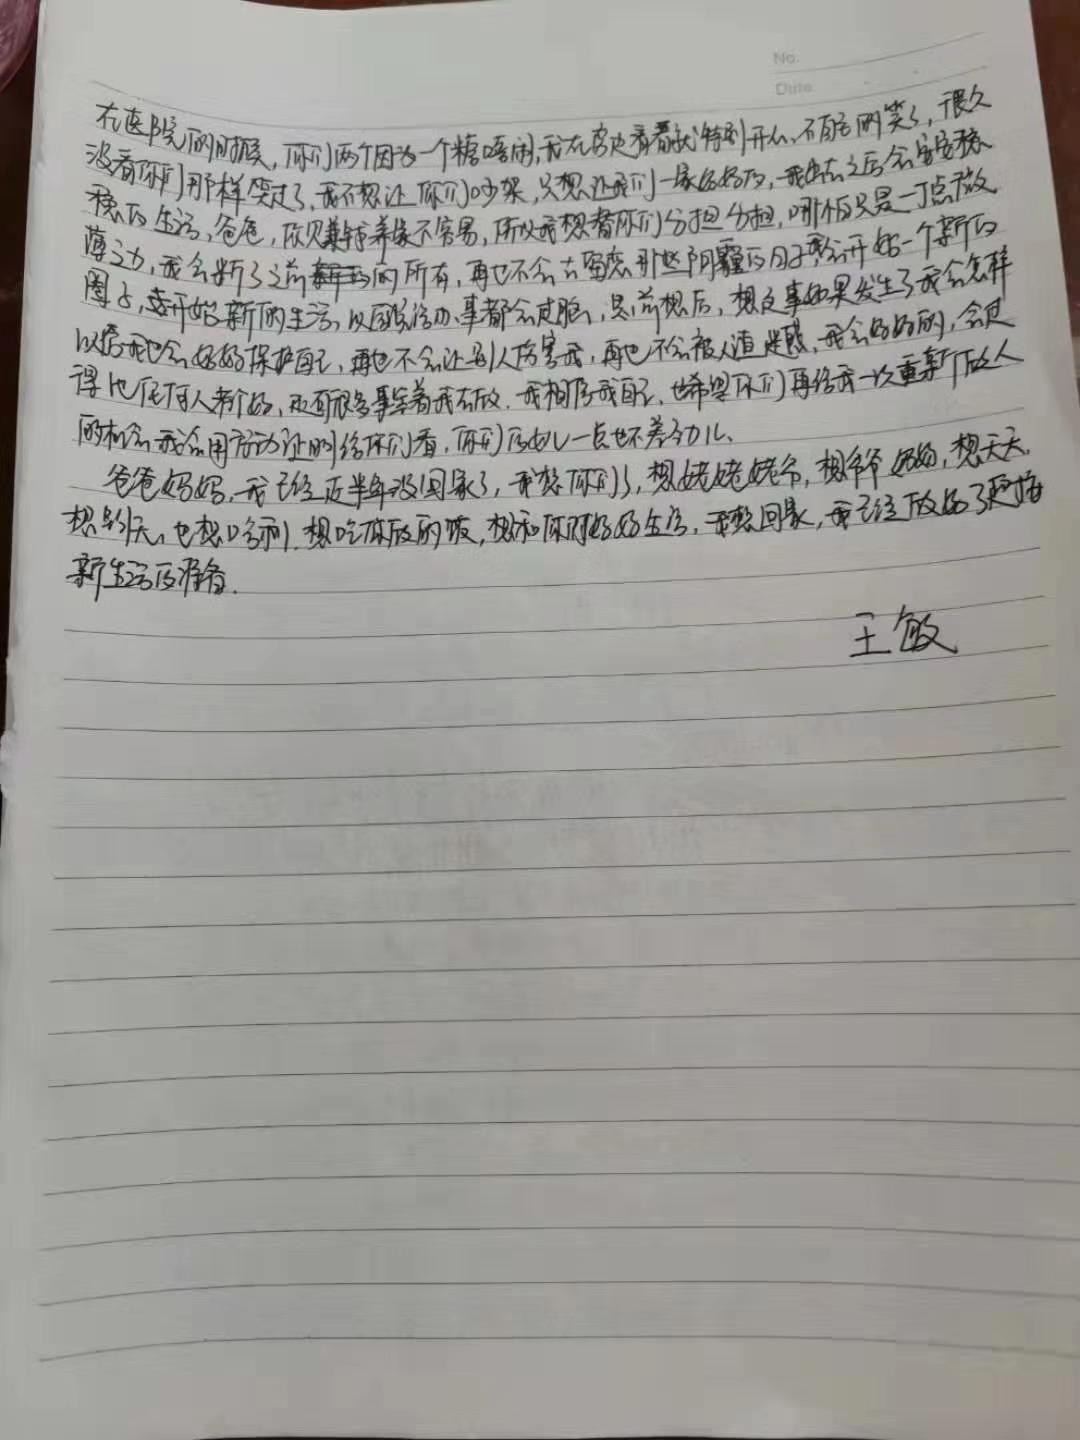 No.
Date
在医院的时候，你们两个因为一个糖嘻闹，我在旁边看着我特别开心，不自主的笑了，很久
没看你们那样笑过了，我不想让你们吵架，只想让我们一家好好的，我出去之后会安安稳
稳的生活，爸爸，你又赚钱养家不容易，所以我想替你们分担分担，哪怕只是一丁点微
薄之力，我会断了之前的所有，再也不会去留恋那些阴霾的日子，我会开始一个新的
圈子，开始新的生活，以后说话办事都会过脑，思前想后，想这事如果发生了我会怎样
以后我也会好好保护自己，再也不会让别人伤害我，再也不会被人渣迷惑，我会好好的，会过
得比任何人都好，还有很多事等着我去做，我相信我自己，也希望你们再给我一次重新做人
的机会，我会用行动证明给你们看，你们的女儿一点也不差劲儿、
爸爸妈妈，我已经近半年没回家了，我想你们了，想姥姥姥爷，想爷爷奶奶，想天天，
想，也想，想吃你做的饭，想和你们好好生活，我想回家，我已经做好了迎接
新生活的准备.
王敏